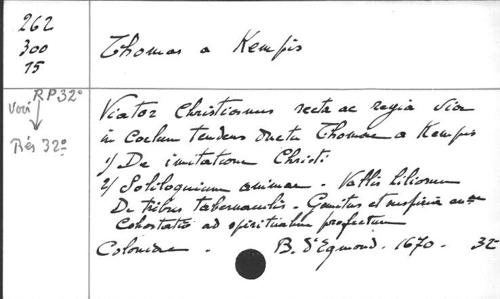 262
300
15
Thomas a Kempis
RP 32°
Voir
Rés 32°
Viator Christianus recta ac regia via
in Coelum tendens ductu Thomae a Kempis
1) De imitatione Christi
2) Soliloquium animae - Vallis liliorum
De tribus tabernaculis - Gemitus et suspiria an
Cohortatio ad spiritualem profectum
Coloniae - B. d'Egmond - 1670 - 32